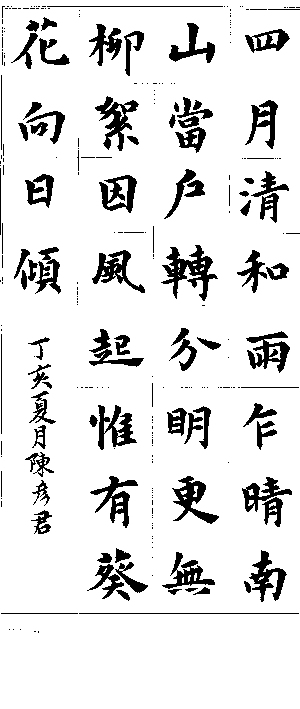 四月清和雨乍晴南
山當户轉分明更無
柳絮因風起惟有葵
花向日傾
丁亥夏月陳彦君